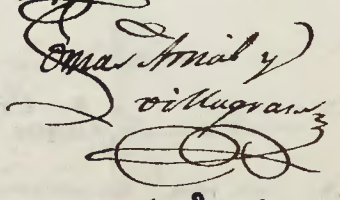 Tomas Arnal y
villagrasa